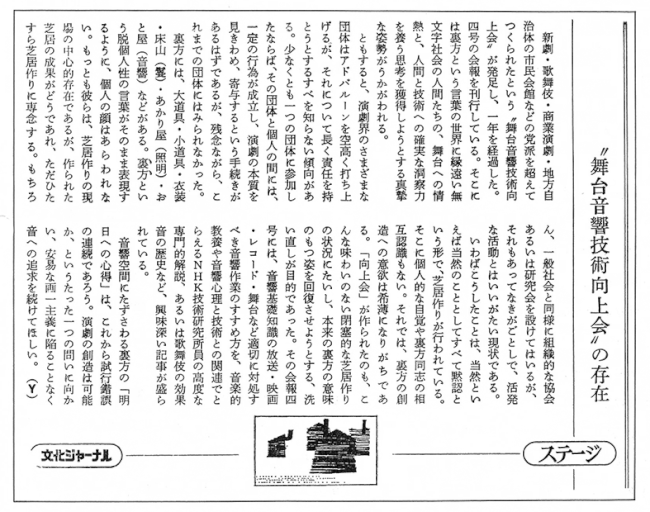 〝舞台音響技術向上会〟の存在
新劇・歌舞伎・商業演劇・地方自
治体の市民会館などの党派を超えて
つくられたという〝舞台音響技術向
上会〟が発足し、一年を経過した。
四号の会報を刊行している。そこに
は裏方という言葉の世界に縁遠い無
文字社会の人間たちの、舞台への情
熱と、人間と技術への確実な洞察力
を養う思考を獲得しようとする真摯
な姿勢がうかがわれる。
ともすると、演劇界のさまざまな
団体はアドバルーンを空高く打ち上
げるが、それについて長く責任を持
とうとするすべを知らない傾向があ
る。少なくとも一つの団体に参加し
たならば、その団体と個人の間には、
一定の行為が成立し、演劇の本質を
見きわめ、寄与するという手続きが
あるはずであるが、残念ながら、こ
れまでの団体にはみられなかった。
裏方には、大道具・小道具・衣装
・床山（鬘）・あかり屋（照明）・お
と屋（音響）などがある。裏方とい
う脱個人性の言葉がそのまま表現す
るように、個人の顔はあらわれな
い。もっとも彼らは、芝居作りの現
場の中心的存在であるが、作られた
芝居の成果がどうであれ、ただひた
すら芝居作りに専念する。もちろ
ん、一般社会と同様に組織的な協会
あるいは研究会を設けてはいるが、
それもあってなきがごとしで、活発
な活動とはいいがたい現状である。
いわばこうしたことは、当然とい
えば当然のこととしてすべて黙認と
いう形で、芝居作りが行われている。
そこに個人的な自覚や裏方同志の相
互認識もない。それでは、裏方の創
造への意欲は希薄になりがちであ
る。「向上会」が作られたのも、こ
んな味わいのない閉塞的な芝居作り
の状況にたいし、本来の裏方の意味
のもつ姿を回復させようとする、洗
い直しが目的であった。その会報四
号には、音響基礎知識の放送・映画
・レコード・舞台など適切に対処す
べき音響作業のすすめ方を、音楽的
教養や音響心理と技術との関連でと
らえるNHK技術研究所員の高度な
専門的解説、あるいは歌舞伎の効果
音の歴史など、興味深い記事が盛ら
れている。
音響空間にたずさわる裏方の「明
日への心得」は、これから試行錯誤
の連続であろう。演劇の創造は可能
か、というたった一つの問いに向か
い、安易な画一主義に陥ることなく
音への追求を続けてほしい。（Y）
ステージ
文化ジャーナル